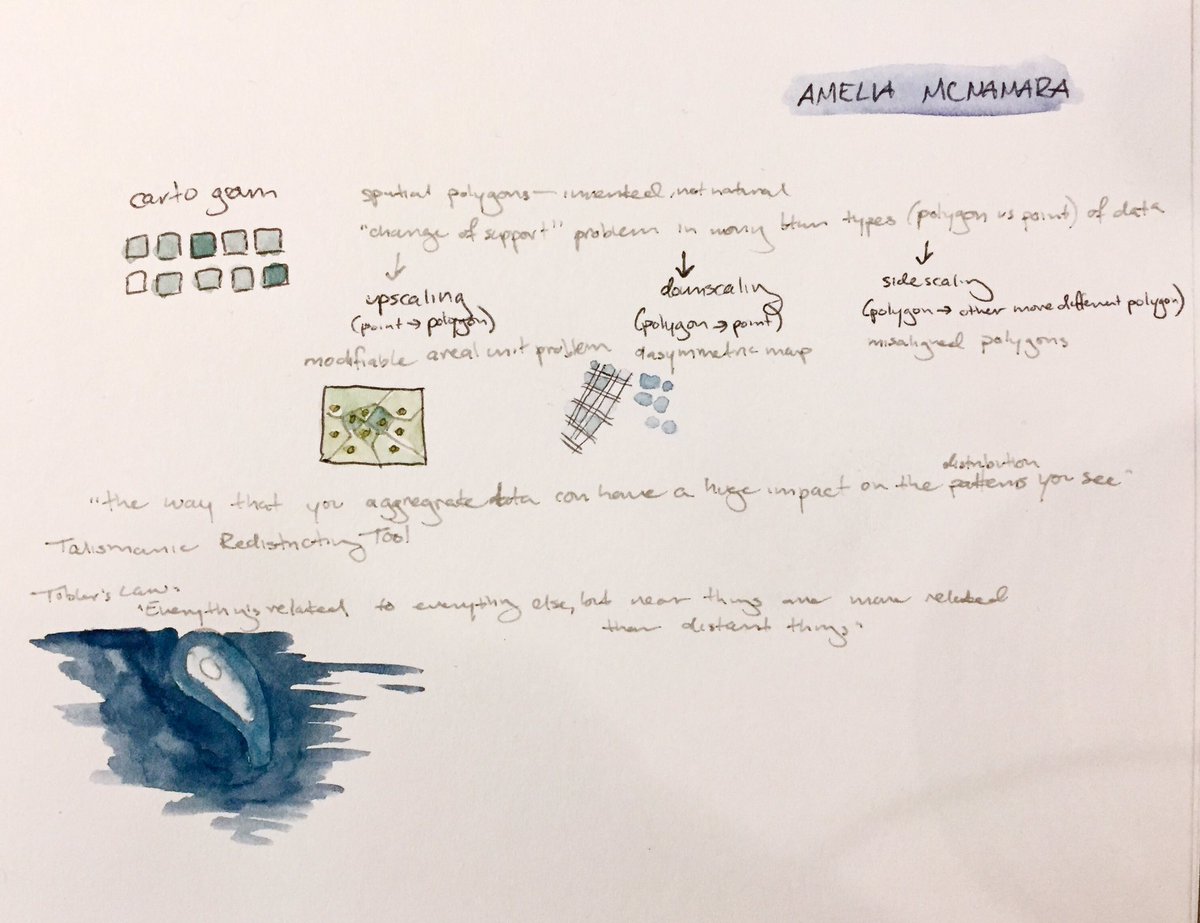 AMELIA MCNAMARA
cartogram
spatial polygons — invented, not natural
"change of support" problem in moving btwn types (polygon vs point) of data
upscaling
(point → polygon)
modifiable areal unit problem
downscaling
(polygon → point)
dasymmetric map
sidescaling
(polygon → other more different polygon)
misaligned polygons
distribution
"the way that you aggregrate data can have a huge impact on the patterns you see"
Talismanic Redistricting Tool
Tobler's Law:
"Everything is related to everything else, but near things are more related
than distant things"